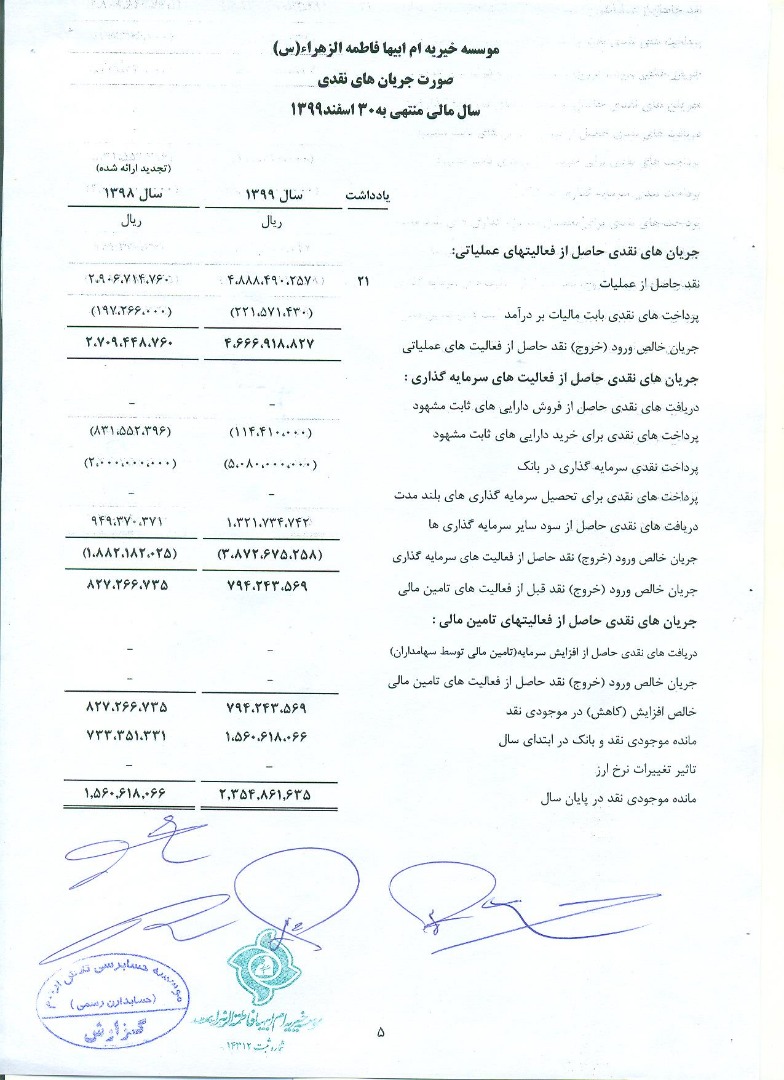 موسسه خیریه ام ابیها فاطمه الزهراء(س)
صورت جریان های نقدی
سال مالی منتهی به۳۰ اسفند۱۳۹۹
(تجدید ارائه شده)
یادداشت سال ۱۳۹۹ سال ۱۳۹۸
ریال ریال
جریان های نقدی حاصل از فعالیتهای عملیاتی:
نقد حاصل از عملیات ۲۱ ۴،۸۸۸،۴۹۰،۲۵۷ ۲،۹۰۶،۷۱۴،۷۶۰
پرداخت های نقدی بابت مالیات بر درآمد (۲۲۱،۵۷۱،۴۳۰) (۱۹۷،۲۶۶،۰۰۰)
جریان خالص ورود (خروج) نقد حاصل از فعالیت های عملیاتی ۴،۶۶۶،۹۱۸،۸۲۷ ۲،۷۰۹،۴۴۸،۷۶۰
جریان های نقدی حاصل از فعالیت های سرمایه گذاری :
دریافت های نقدی حاصل از فروش دارایی های ثابت مشهود - -
پرداخت های نقدی برای خرید دارایی های ثابت مشهود (۱۱۴،۴۱۰،۰۰۰) (۸۳۱،۵۵۲،۳۹۶)
پرداخت نقدی سرمایه گذاری در بانک (۵،۰۸۰،۰۰۰،۰۰۰) (۲،۰۰۰،۰۰۰،۰۰۰)
پرداخت های نقدی برای تحصیل سرمایه گذاری های بلند مدت - -
دریافت های نقدی حاصل از سود سایر سرمایه گذاری ها ۱،۳۲۱،۷۳۴،۷۴۲ ۹۴۹،۳۷۰،۳۷۱
جریان خالص ورود (خروج) نقد حاصل از فعالیت های سرمایه گذاری (۳،۸۷۲،۶۷۵،۲۵۸) (۱،۸۸۲،۱۸۲،۰۲۵)
جریان خالص ورود (خروج) نقد قبل از فعالیت های تامین مالی ۷۹۴،۲۴۳،۵۶۹ ۸۲۷،۲۶۶،۷۳۵
جریان های نقدی حاصل از فعالیتهای تامین مالی :
دریافت های نقدی حاصل از افزایش سرمایه(تامین مالی توسط سهامداران) - -
جریان خالص ورود (خروج) نقد حاصل از فعالیت های تامین مالی - -
خالص افزایش (کاهش) در موجودی نقد ۷۹۴،۲۴۳،۵۶۹ ۸۲۷،۲۶۶،۷۳۵
مانده موجودی نقد و بانک در ابتدای سال ۱،۵۶۰،۶۱۸،۰۶۶ ۷۳۳،۳۵۱،۳۳۱
تاثیر تغییرات نرخ ارز - -
مانده موجودی نقد در پایان سال ۲,۳۵۴,۸۶۱,۶۳۵ ۱,۵۶۰,۶۱۸,۰۶۶
موسسه حسابرسی
(حسابداران رسمی)
گزارش
موسسه خیریه ام ابیها فاطمة الزهرا
شماره ثبت ۱۴۳۱۲
۵